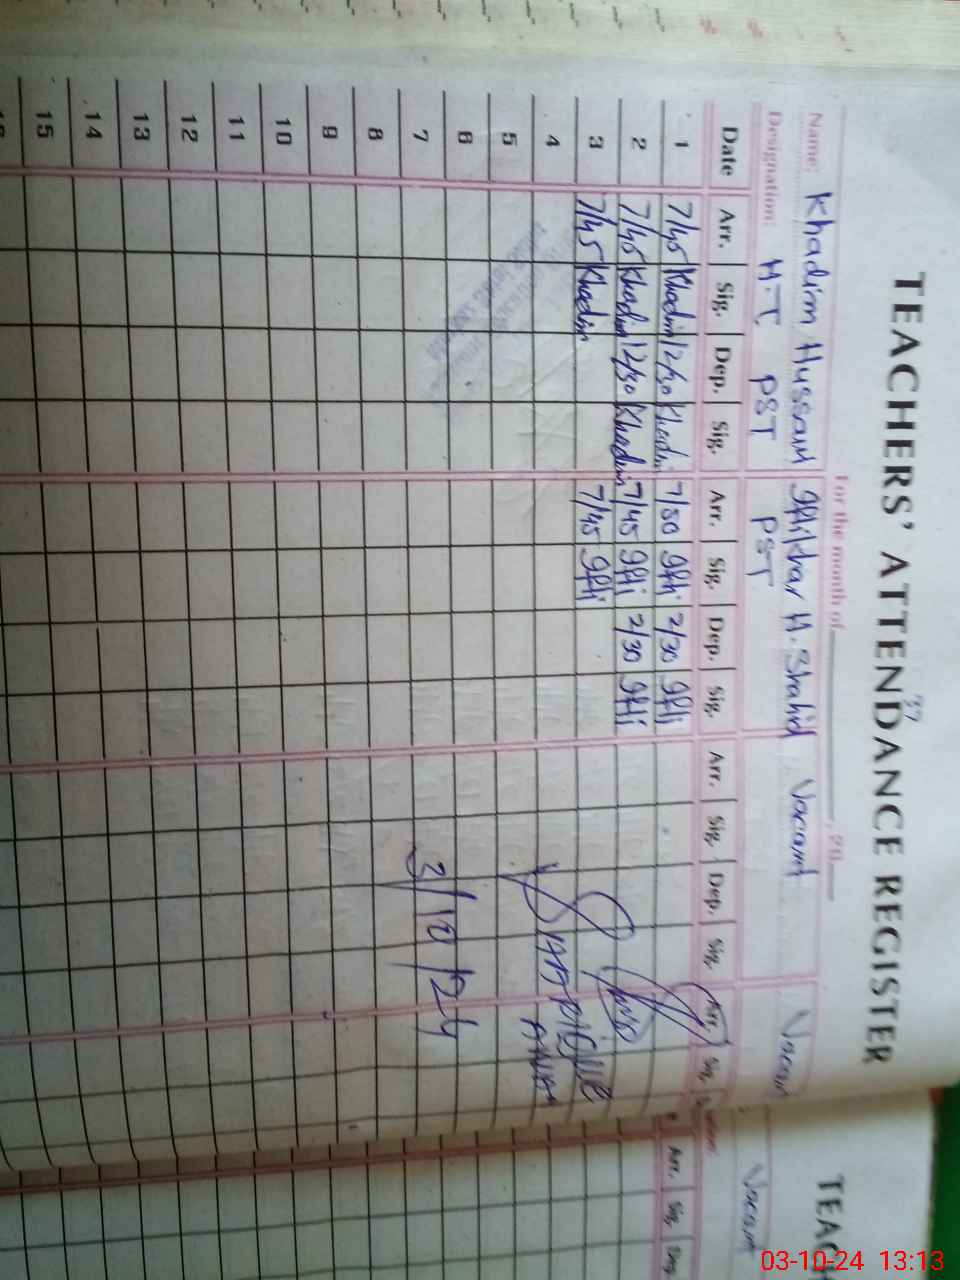 37
TEACHERS' ATTENDANCE REGISTER
For the month of , 20
Name: Khadim Hussain Iftikhar H. Shahid Vacant Vacant
Designation: H.T PST PST
Date Arr. Sig. Dep. Sig. Arr. Sig. Dep. Sig. Arr. Sig. Dep. Sig. Arr. Sig.
1 7/45 Khadim 12/30 Khadi 7/50 Ifti 2/30 Ifti
2 7/45 Khadim 12/30 Khadim 7/45 Ifti 2/30 Ifti
3 7/45 Khadim 7/45 Ifti
4
5
6
7 3/10/24
8
9
10
11
12
13
14
15
TEACH
Vacant
Arr. Sig. Dep.
03-10-24 13:13